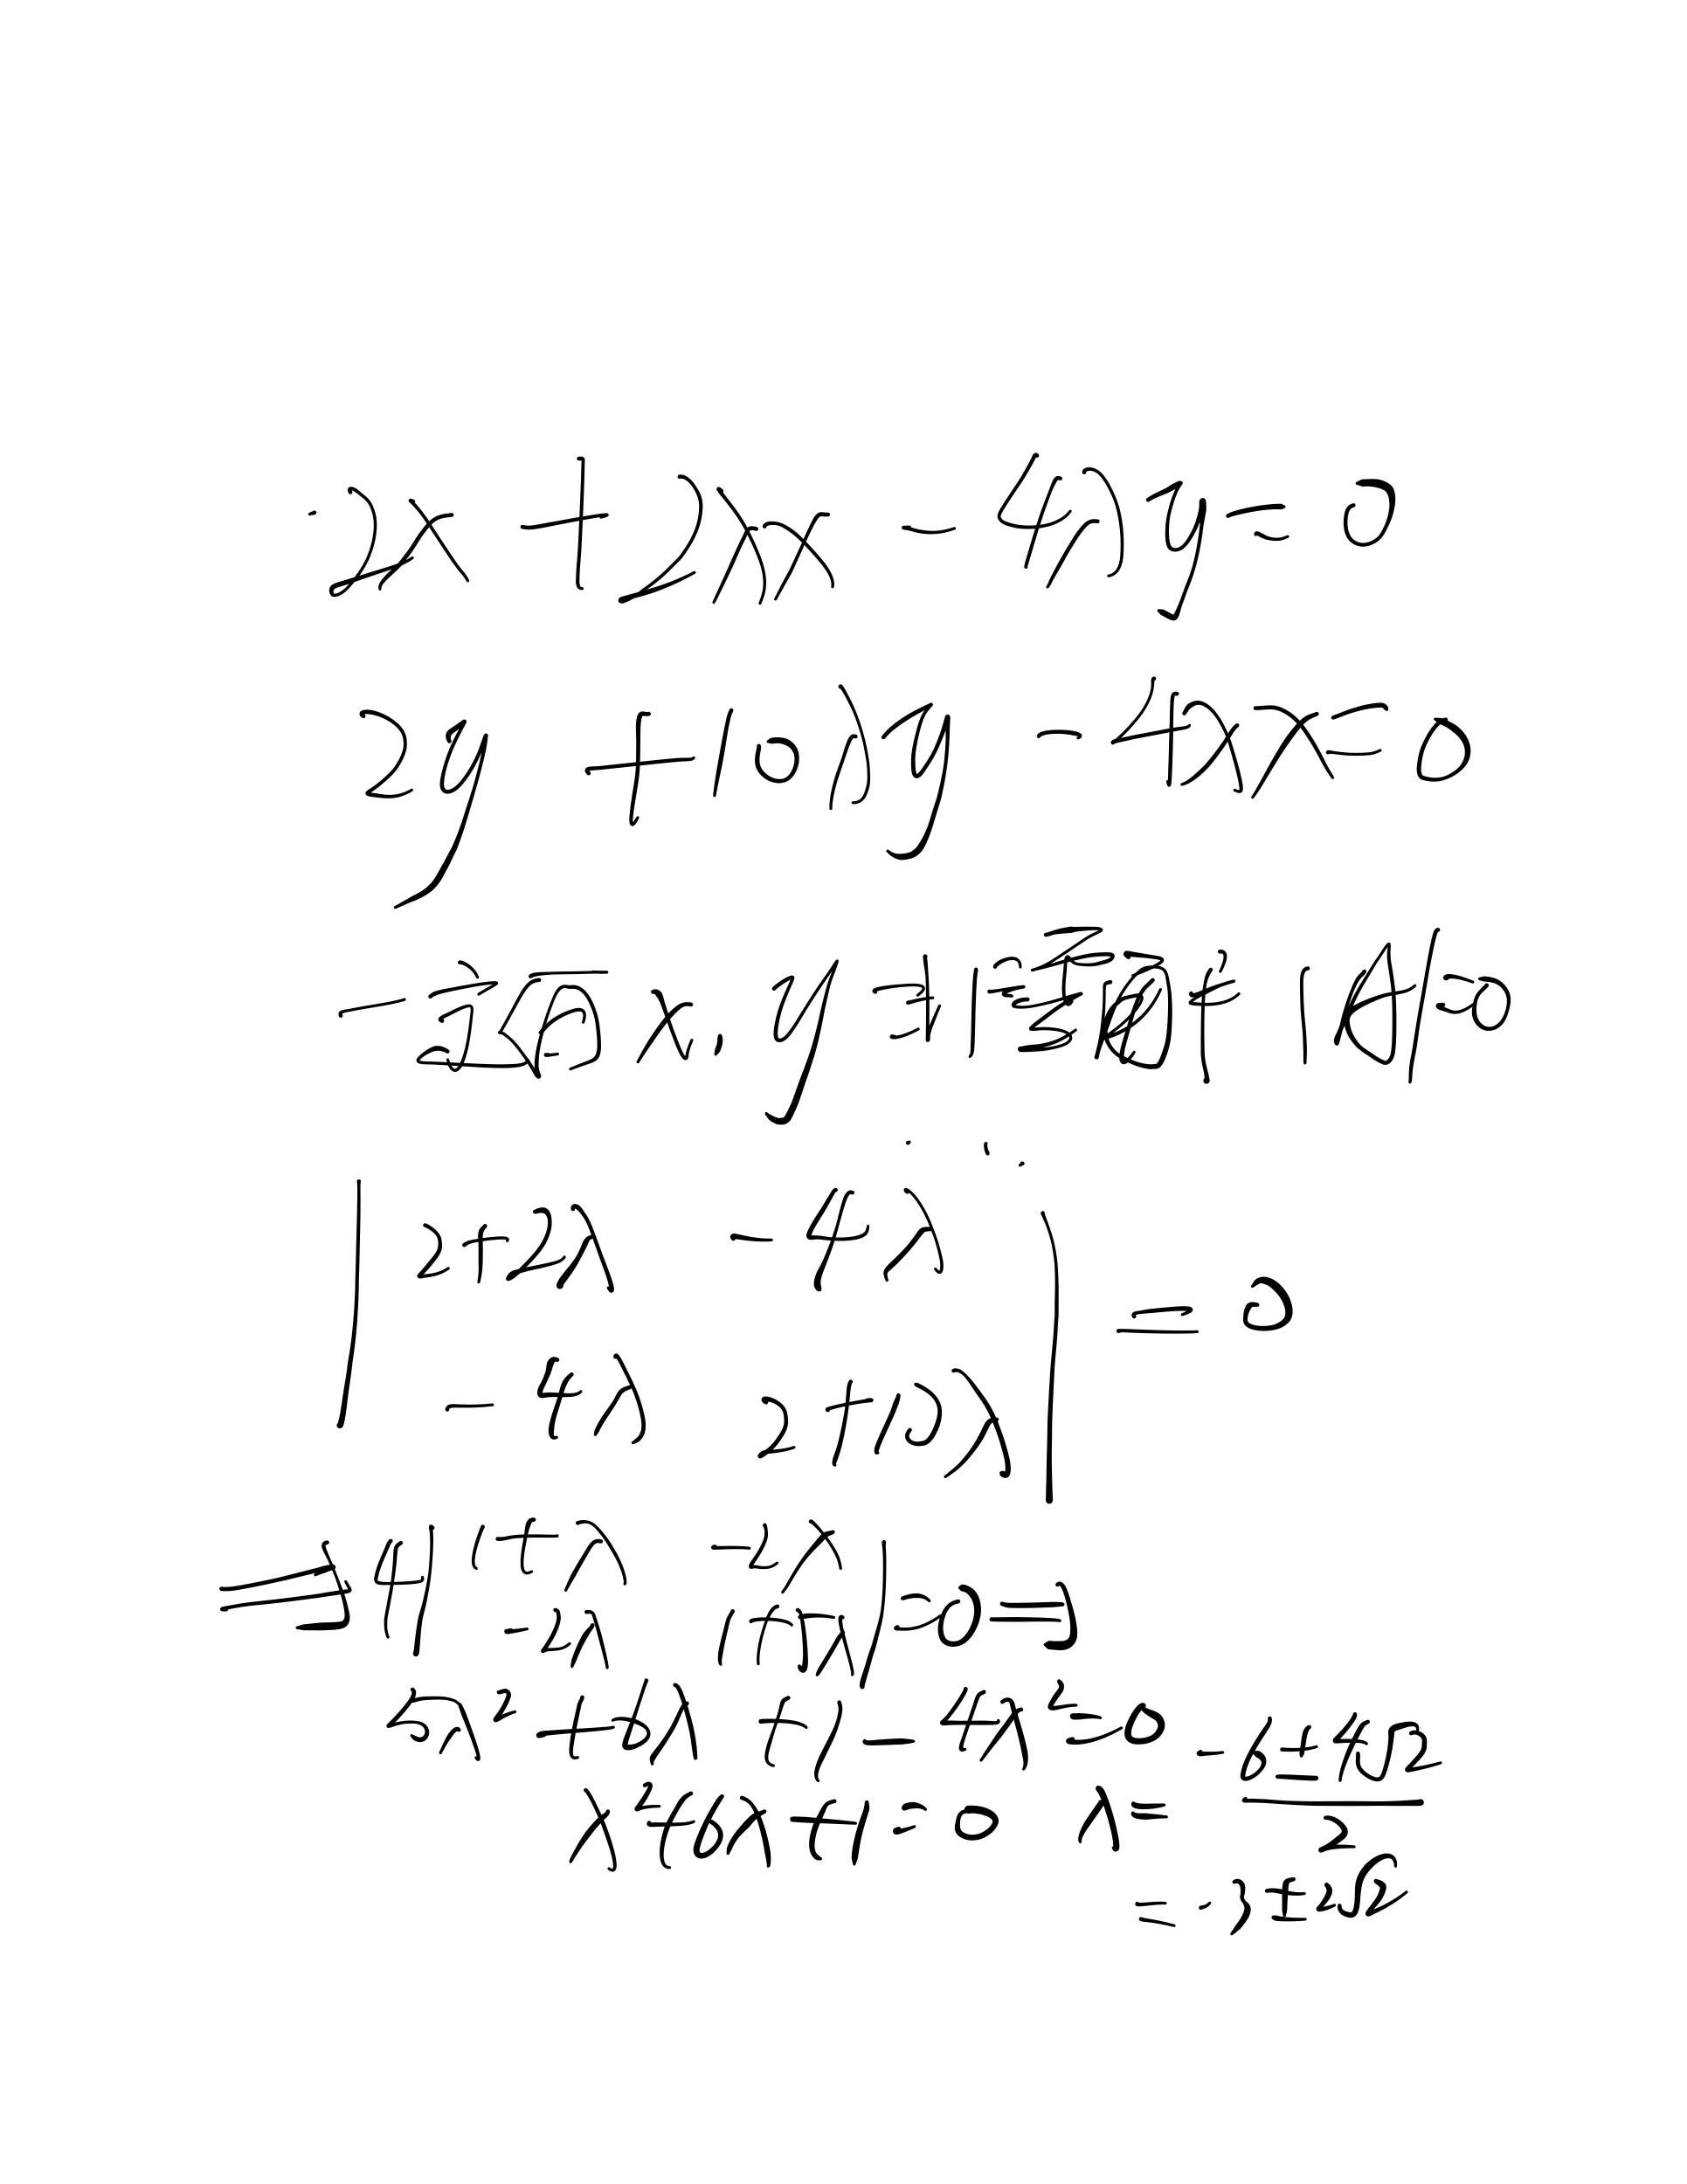 2x + 2λx - 4λy = 0
2y + 10λy - 4λx = 0
一定有 x, y 非零解 |A|=0
| 2+2λ -4λ |
| -4λ 2+10λ | = 0
⇒ 4 | 1+λ -2λ |
| -2λ 1+5λ | = 0 ⇒
5λ² + 6λ + 1 - 4λ² = 0
λ² + 6λ + 1 = 0 λ = (-6 ± 4√2)/2
= -3 ± 2√2